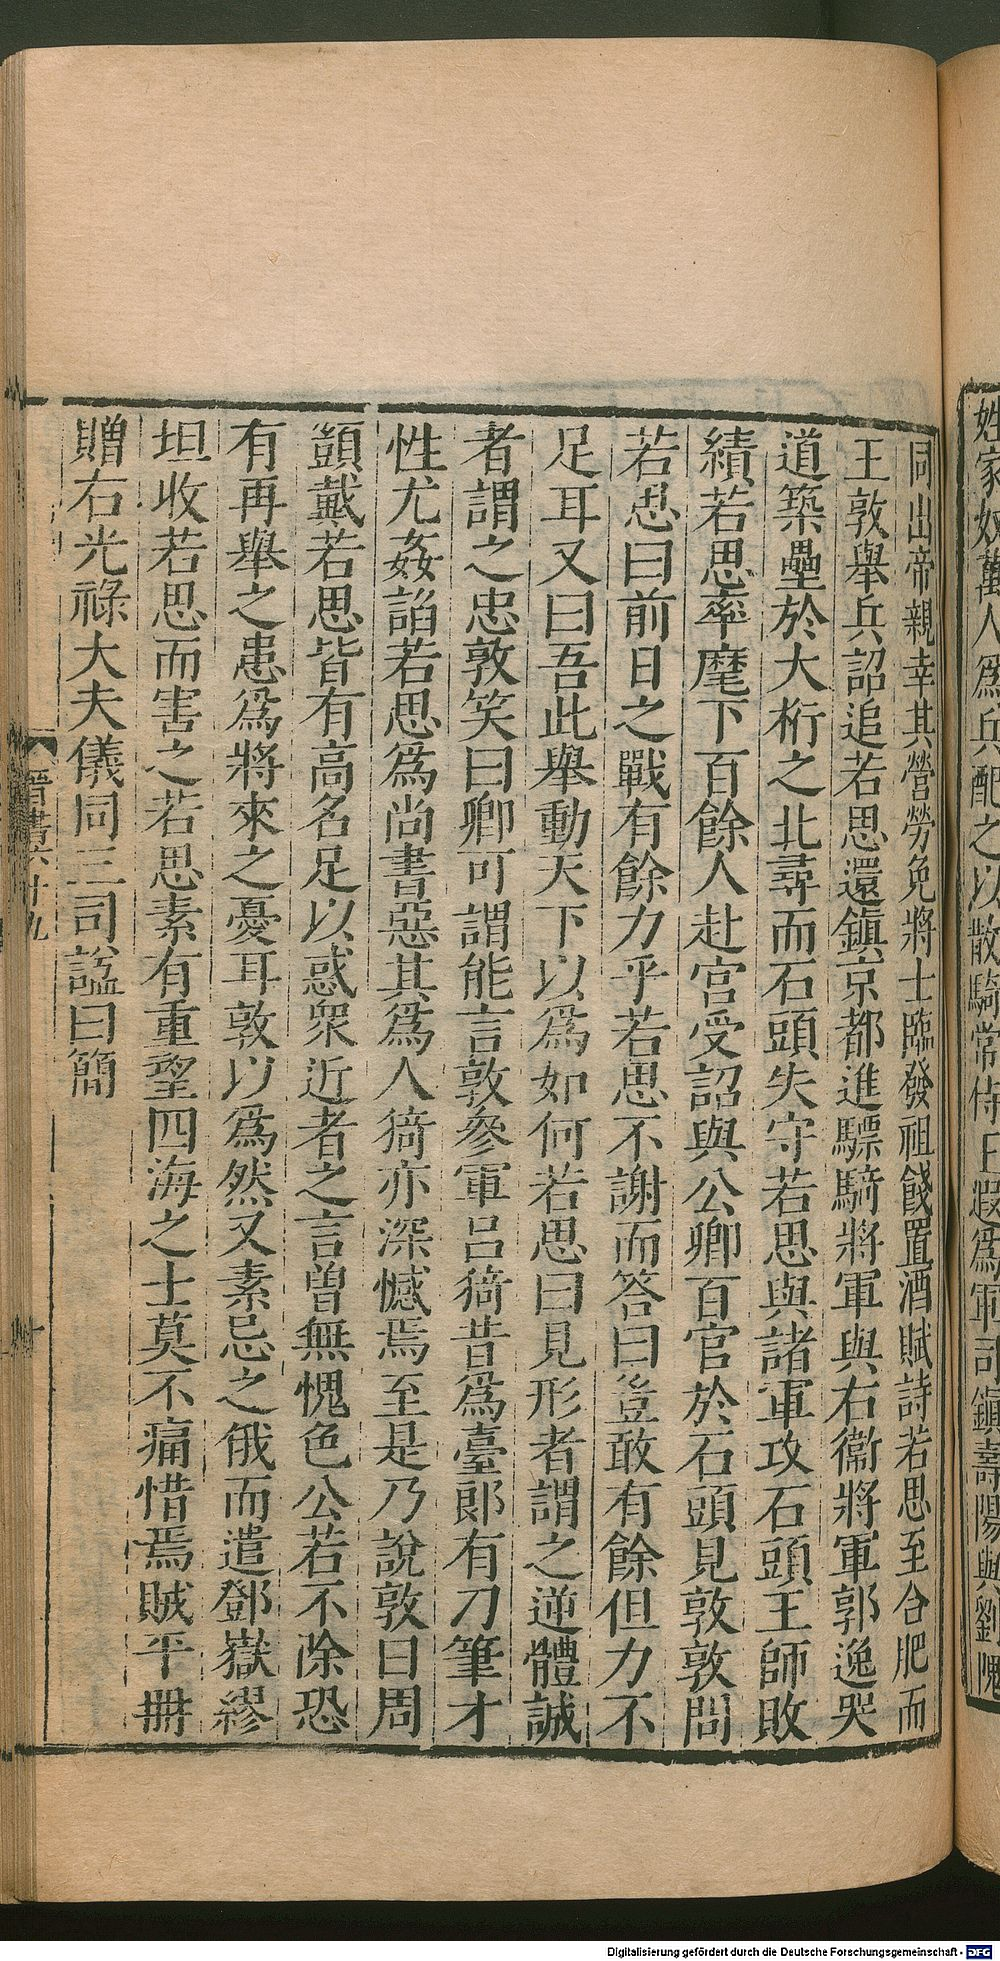 姓家奴萬人爲兵配之以散騎常侍王遐爲軍司鎮壽陽與劉隗
同出帝親幸其營勞免將士臨發祖餞置酒賦詩若思至合肥而
王敦舉兵詔追若思還鎮京都進驃騎將軍與右衞將軍郭逸哭
道築壘於大桁之北尋而石頭失守若思與諸軍攻石頭王師敗
績若思率麾下百餘人赴宮受詔與公卿百官於石頭見敦敦問
若思曰前日之戰有餘力乎若思不謝而答曰豈敢有餘但力不
足耳又曰吾此舉動天下以爲如何若思曰見形者謂之逆體誠
者謂之忠敦笑曰卿可謂能言敦參軍呂猗昔爲臺郎有刀筆才
性尤姦諂若思爲尚書惡其爲人猗亦深憾焉至是乃說敦曰周
顗戴若思皆有高名足以惑衆近者之言曾無愧色公若不除恐
有再舉之患爲將來之憂耳敦以爲然又素忌之俄而遣鄧嶽繆
坦收若思而害之若思素有重望四海之士莫不痛惜焉賊平冊
贈右光祿大夫儀同三司諡曰簡
晉書六十九
十
Digitalisierung gefördert durch die Deutsche Forschungsgemeinschaft - DFG